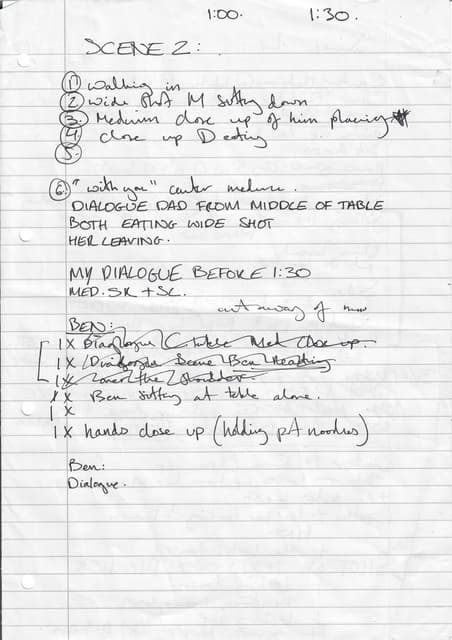 1:00. 1:30.
SCENE 2:
1) walking in
2 wide shot M sitting down
3. Medium close up of him placing
4 close up D eating
5.
6. "with you" center medium.
DIALOGUE DAD FROM MIDDLE OF TABLE
BOTH EATING WIDE SHOT
HER LEAVING.
MY DIALOGUE BEFORE 1:30
MED. SR + SL.
cut away of
BEN:
1 X Dialogue Table Med Close up.
1 X Dialogue Scene Ben Heating
1 X over the shoulder
1 X Ben sitting at table alone.
1 X
1 X hands close up (holding pot noodles)
Ben:
Dialogue.